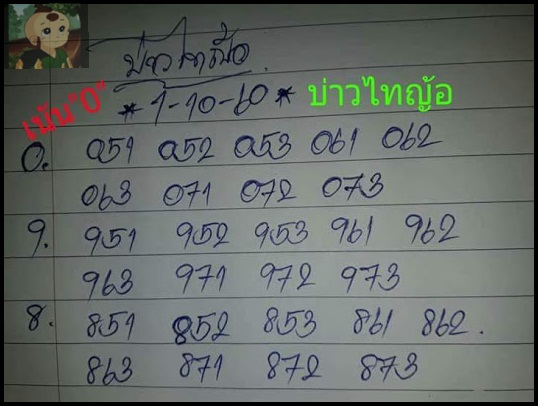 บ่าวไทญ้อ
*1-10-60* บ่าวไทญ้อ
เน้น"0"
0. 051 052 053 061 062
063 071 072 073
9. 951 952 953 961 962
963 971 972 973
8. 851 852 853 861 862.
863 871 872 873